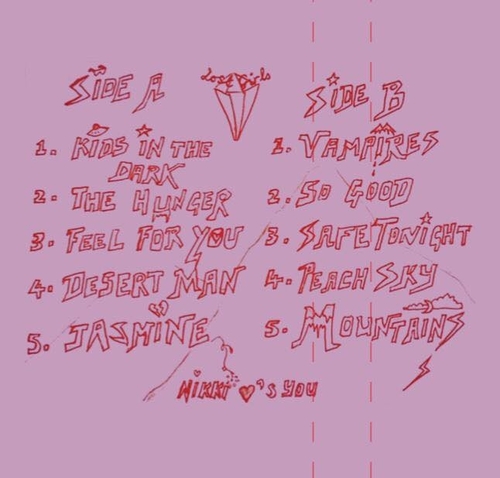 Lost Girls
SIDE A
1. KIDS IN THE
DARK
2. THE HUNGER
3. FEEL FOR YOU
4. DESERT MAN
5. JASMINE
SIDE B
1. VAMPIRES
2. SO GOOD
3. SAFE TONIGHT
4. PEACH SKY
5. MOUNTAINS
NIKKI ♥'S YOU